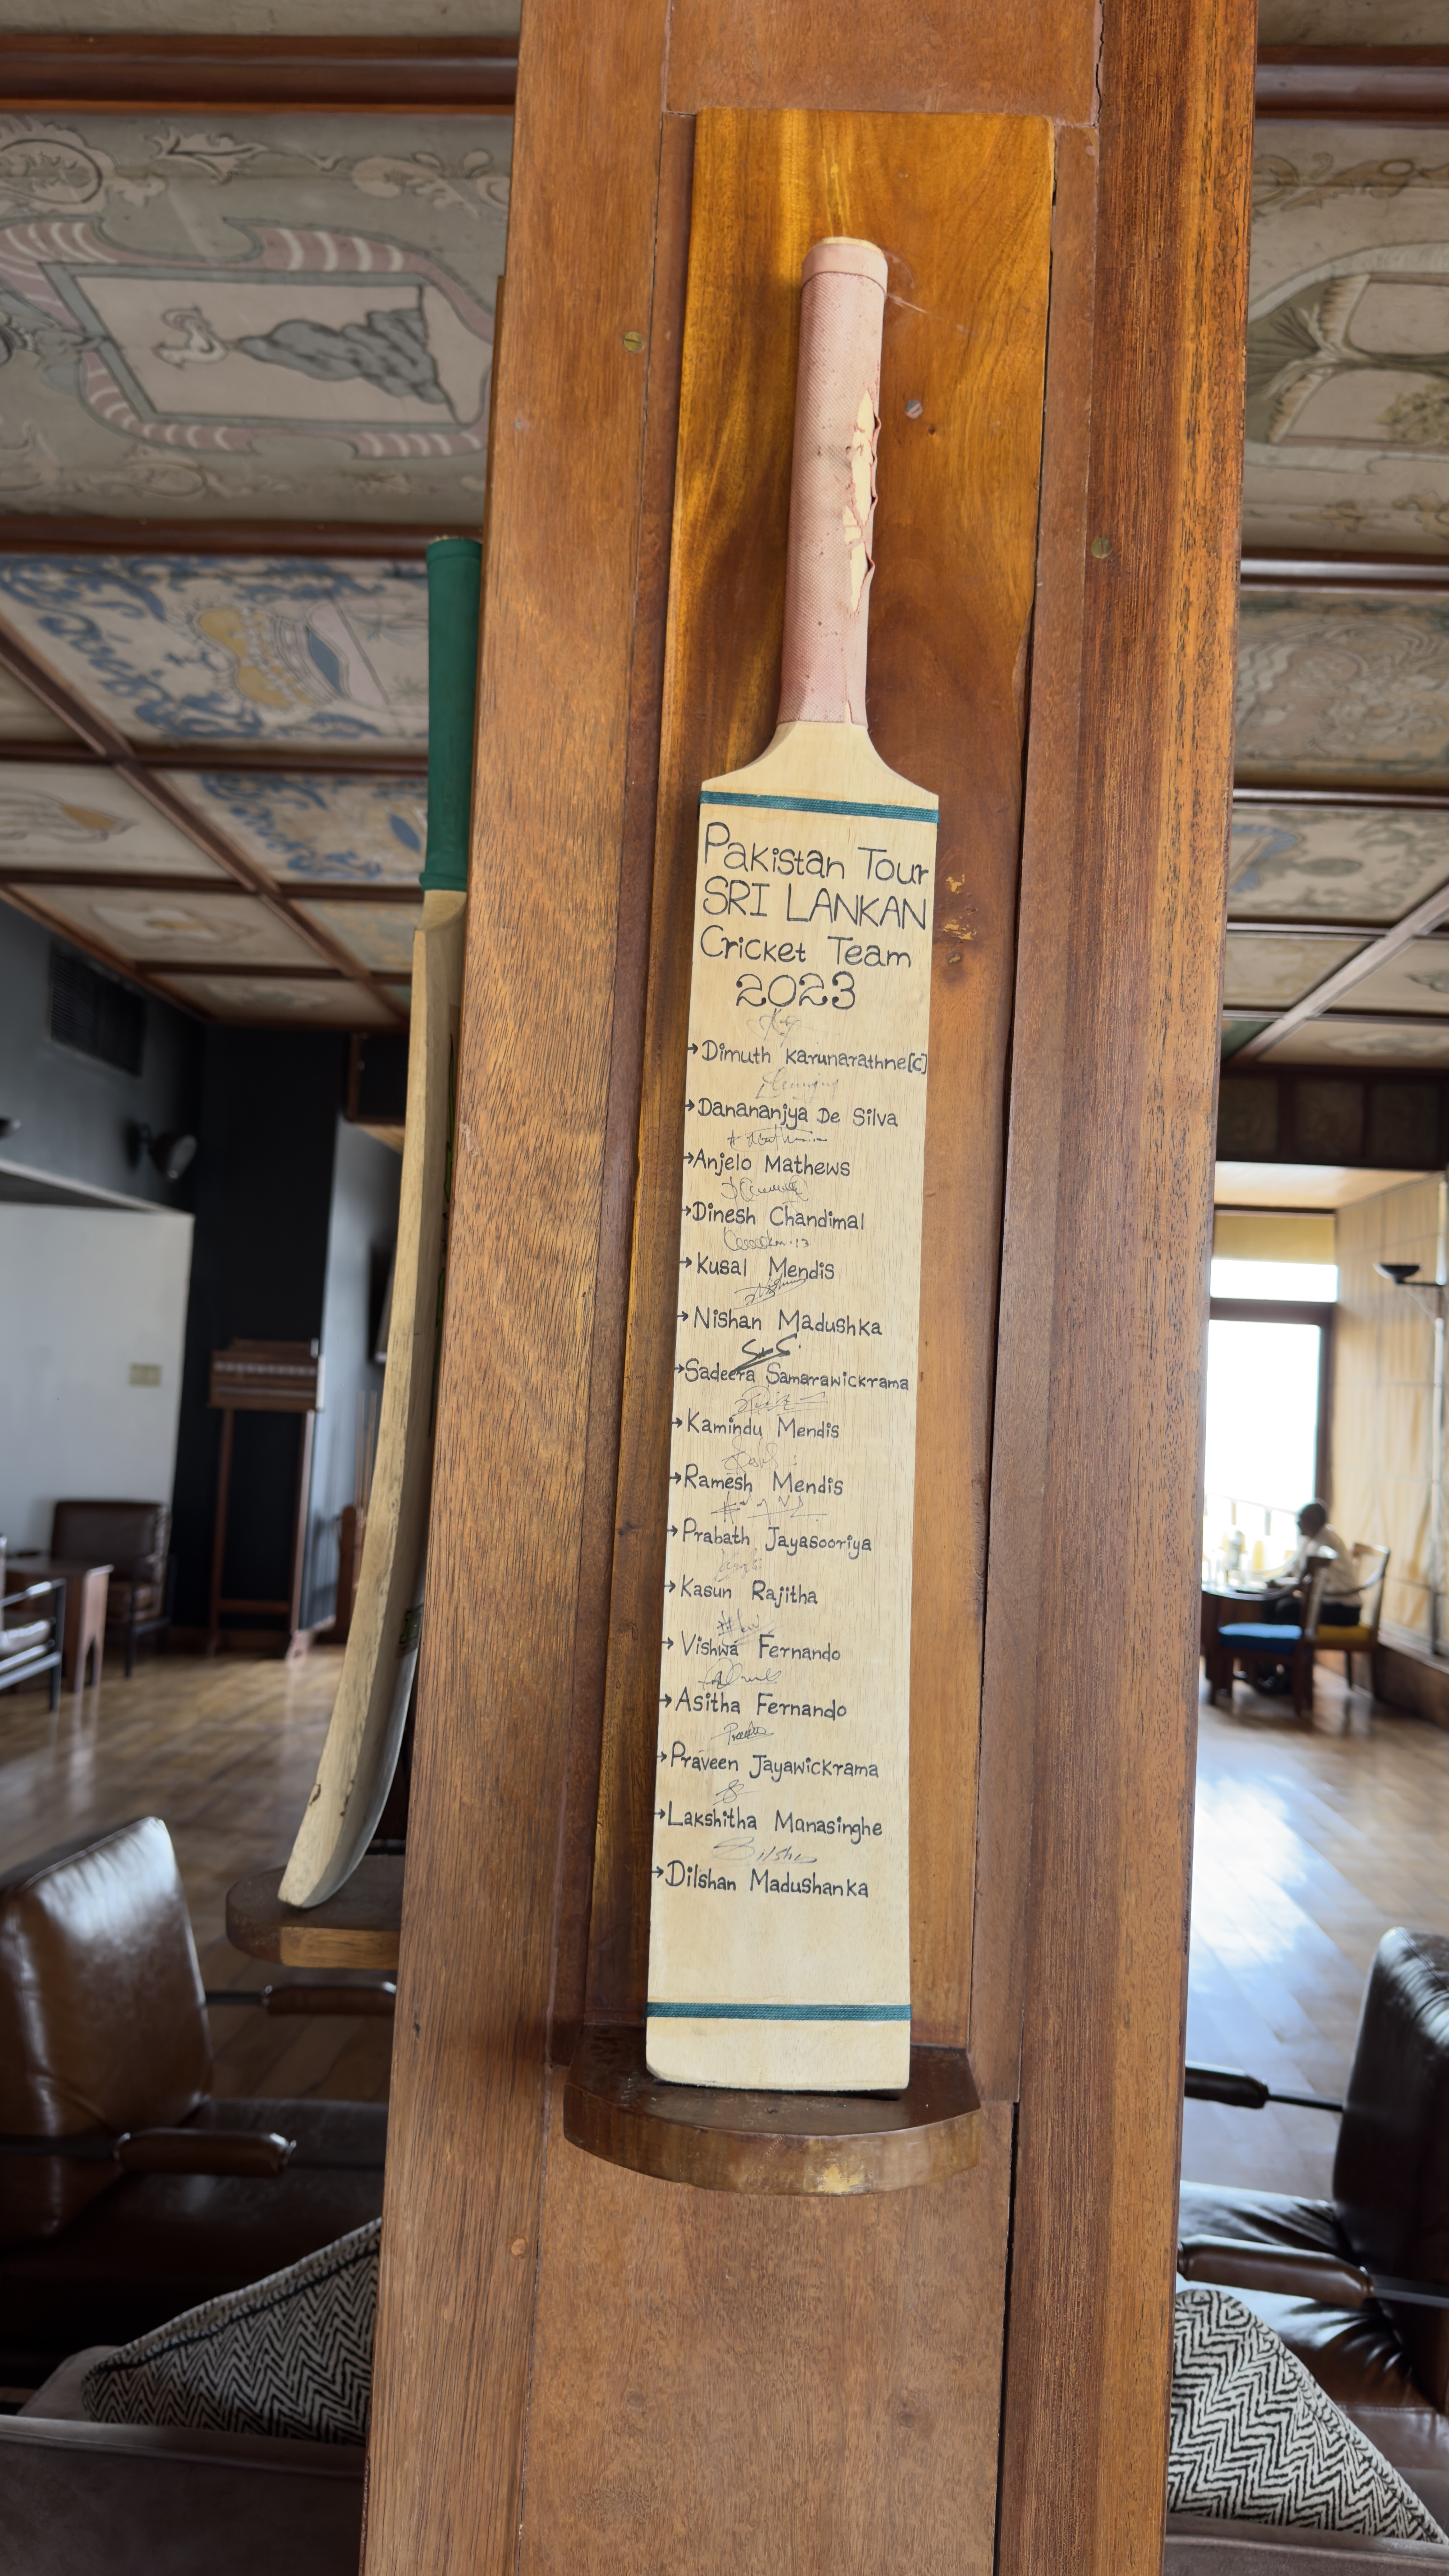 Pakistan Tour
SRI LANKAN
Cricket Team
2023
→Dimuth Karunarathne[C]
→Danananjya De Silva
→Anjelo Mathews
→Dinesh Chandimal
→Kusal Mendis
→Nishan Madushka
→Sadeera Samarawickrama
→Kamindu Mendis
→Ramesh Mendis
→Prabath Jayasooriya
→Kasun Rajitha
→Vishwa Fernando
→Asitha Fernando
→Praveen Jayawickrama
→Lakshitha Manasinghe
→Dilshan Madushanka